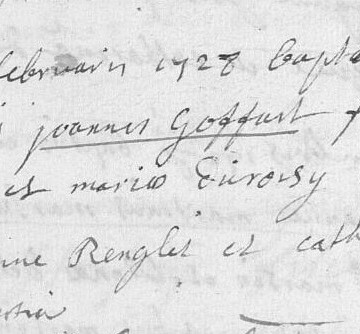 februarii 1728 bapt
joannes Goffart f
et mariæ Duroisy
ine Renglet et cath